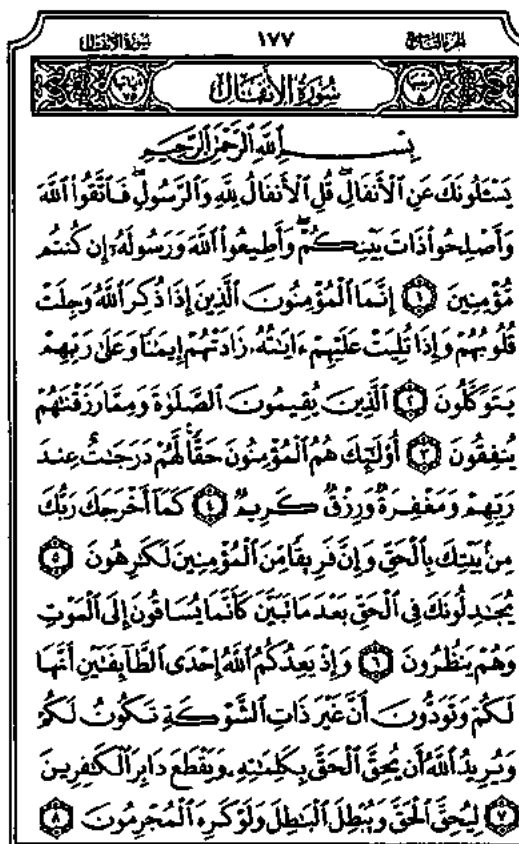 سُورَةُ الأَنفَالِ ١٧٧ الجُزءُ التَّاسِعُ
سُورَةُ الأَنفَالِ
بِسْمِ ٱللَّهِ ٱلرَّحْمَٰنِ ٱلرَّحِيمِ
يَسْـَٔلُونَكَ عَنِ ٱلْأَنفَالِۖ قُلِ ٱلْأَنفَالُ لِلَّهِ وَٱلرَّسُولِۖ فَٱتَّقُوا۟ ٱللَّهَ
وَأَصْلِحُوا۟ ذَاتَ بَيْنِكُمْۖ وَأَطِيعُوا۟ ٱللَّهَ وَرَسُولَهُۥٓ إِن كُنتُم
مُّؤْمِنِينَ ١ إِنَّمَا ٱلْمُؤْمِنُونَ ٱلَّذِينَ إِذَا ذُكِرَ ٱللَّهُ وَجِلَتْ
قُلُوبُهُمْ وَإِذَا تُلِيَتْ عَلَيْهِمْ ءَايَٰتُهُۥ زَادَتْهُمْ إِيمَٰنًا وَعَلَىٰ رَبِّهِمْ
يَتَوَكَّلُونَ ٢ ٱلَّذِينَ يُقِيمُونَ ٱلصَّلَوٰةَ وَمِمَّا رَزَقْنَٰهُمْ
يُنفِقُونَ ٣ أُو۟لَٰٓئِكَ هُمُ ٱلْمُؤْمِنُونَ حَقًّاۚ لَّهُمْ دَرَجَٰتٌ عِندَ
رَبِّهِمْ وَمَغْفِرَةٌ وَرِزْقٌ كَرِيمٌ ٤ كَمَآ أَخْرَجَكَ رَبُّكَ
مِنۢ بَيْتِكَ بِٱلْحَقِّ وَإِنَّ فَرِيقًا مِّنَ ٱلْمُؤْمِنِينَ لَكَٰرِهُونَ ٥
يُجَٰدِلُونَكَ فِى ٱلْحَقِّ بَعْدَ مَا تَبَيَّنَ كَأَنَّمَا يُسَاقُونَ إِلَى ٱلْمَوْتِ
وَهُمْ يَنظُرُونَ ٦ وَإِذْ يَعِدُكُمُ ٱللَّهُ إِحْدَى ٱلطَّآئِفَتَيْنِ أَنَّهَا
لَكُمْ وَتَوَدُّونَ أَنَّ غَيْرَ ذَاتِ ٱلشَّوْكَةِ تَكُونُ لَكُمْ
وَيُرِيدُ ٱللَّهُ أَن يُحِقَّ ٱلْحَقَّ بِكَلِمَٰتِهِۦ وَيَقْطَعَ دَابِرَ ٱلْكَٰفِرِينَ
٧ لِيُحِقَّ ٱلْحَقَّ وَيُبْطِلَ ٱلْبَٰطِلَ وَلَوْ كَرِهَ ٱلْمُجْرِمُونَ ٨